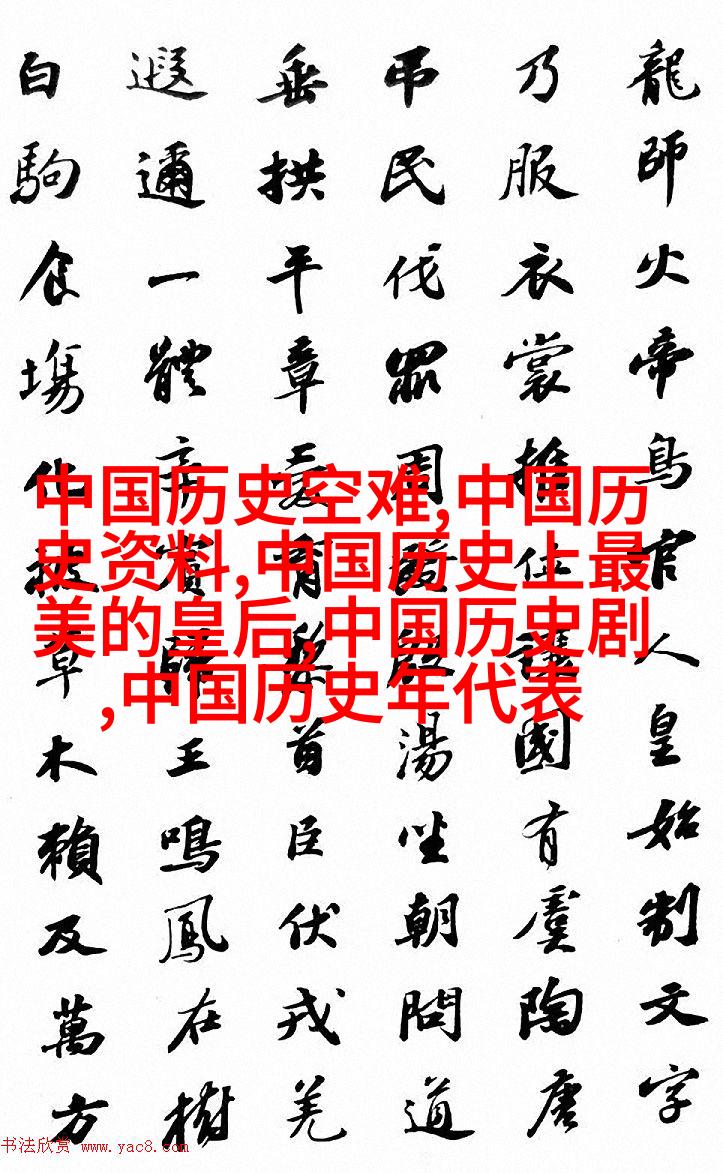 龍師火帝鳥官人皇始制文字
乃服衣裳推位讓國有虞陶唐
吊民伐罪周發殷湯坐朝問道
垂拱平章愛育黎首臣伏戎羌
遐邇一體率賓歸王鳴鳳在樹
白駒食塲化被草木賴及萬方
中国历史空难,中国历
史资料,中国历史上最
美的皇后,中国历史剧
,中国历史年代表
书法欣赏 www.yac8.com